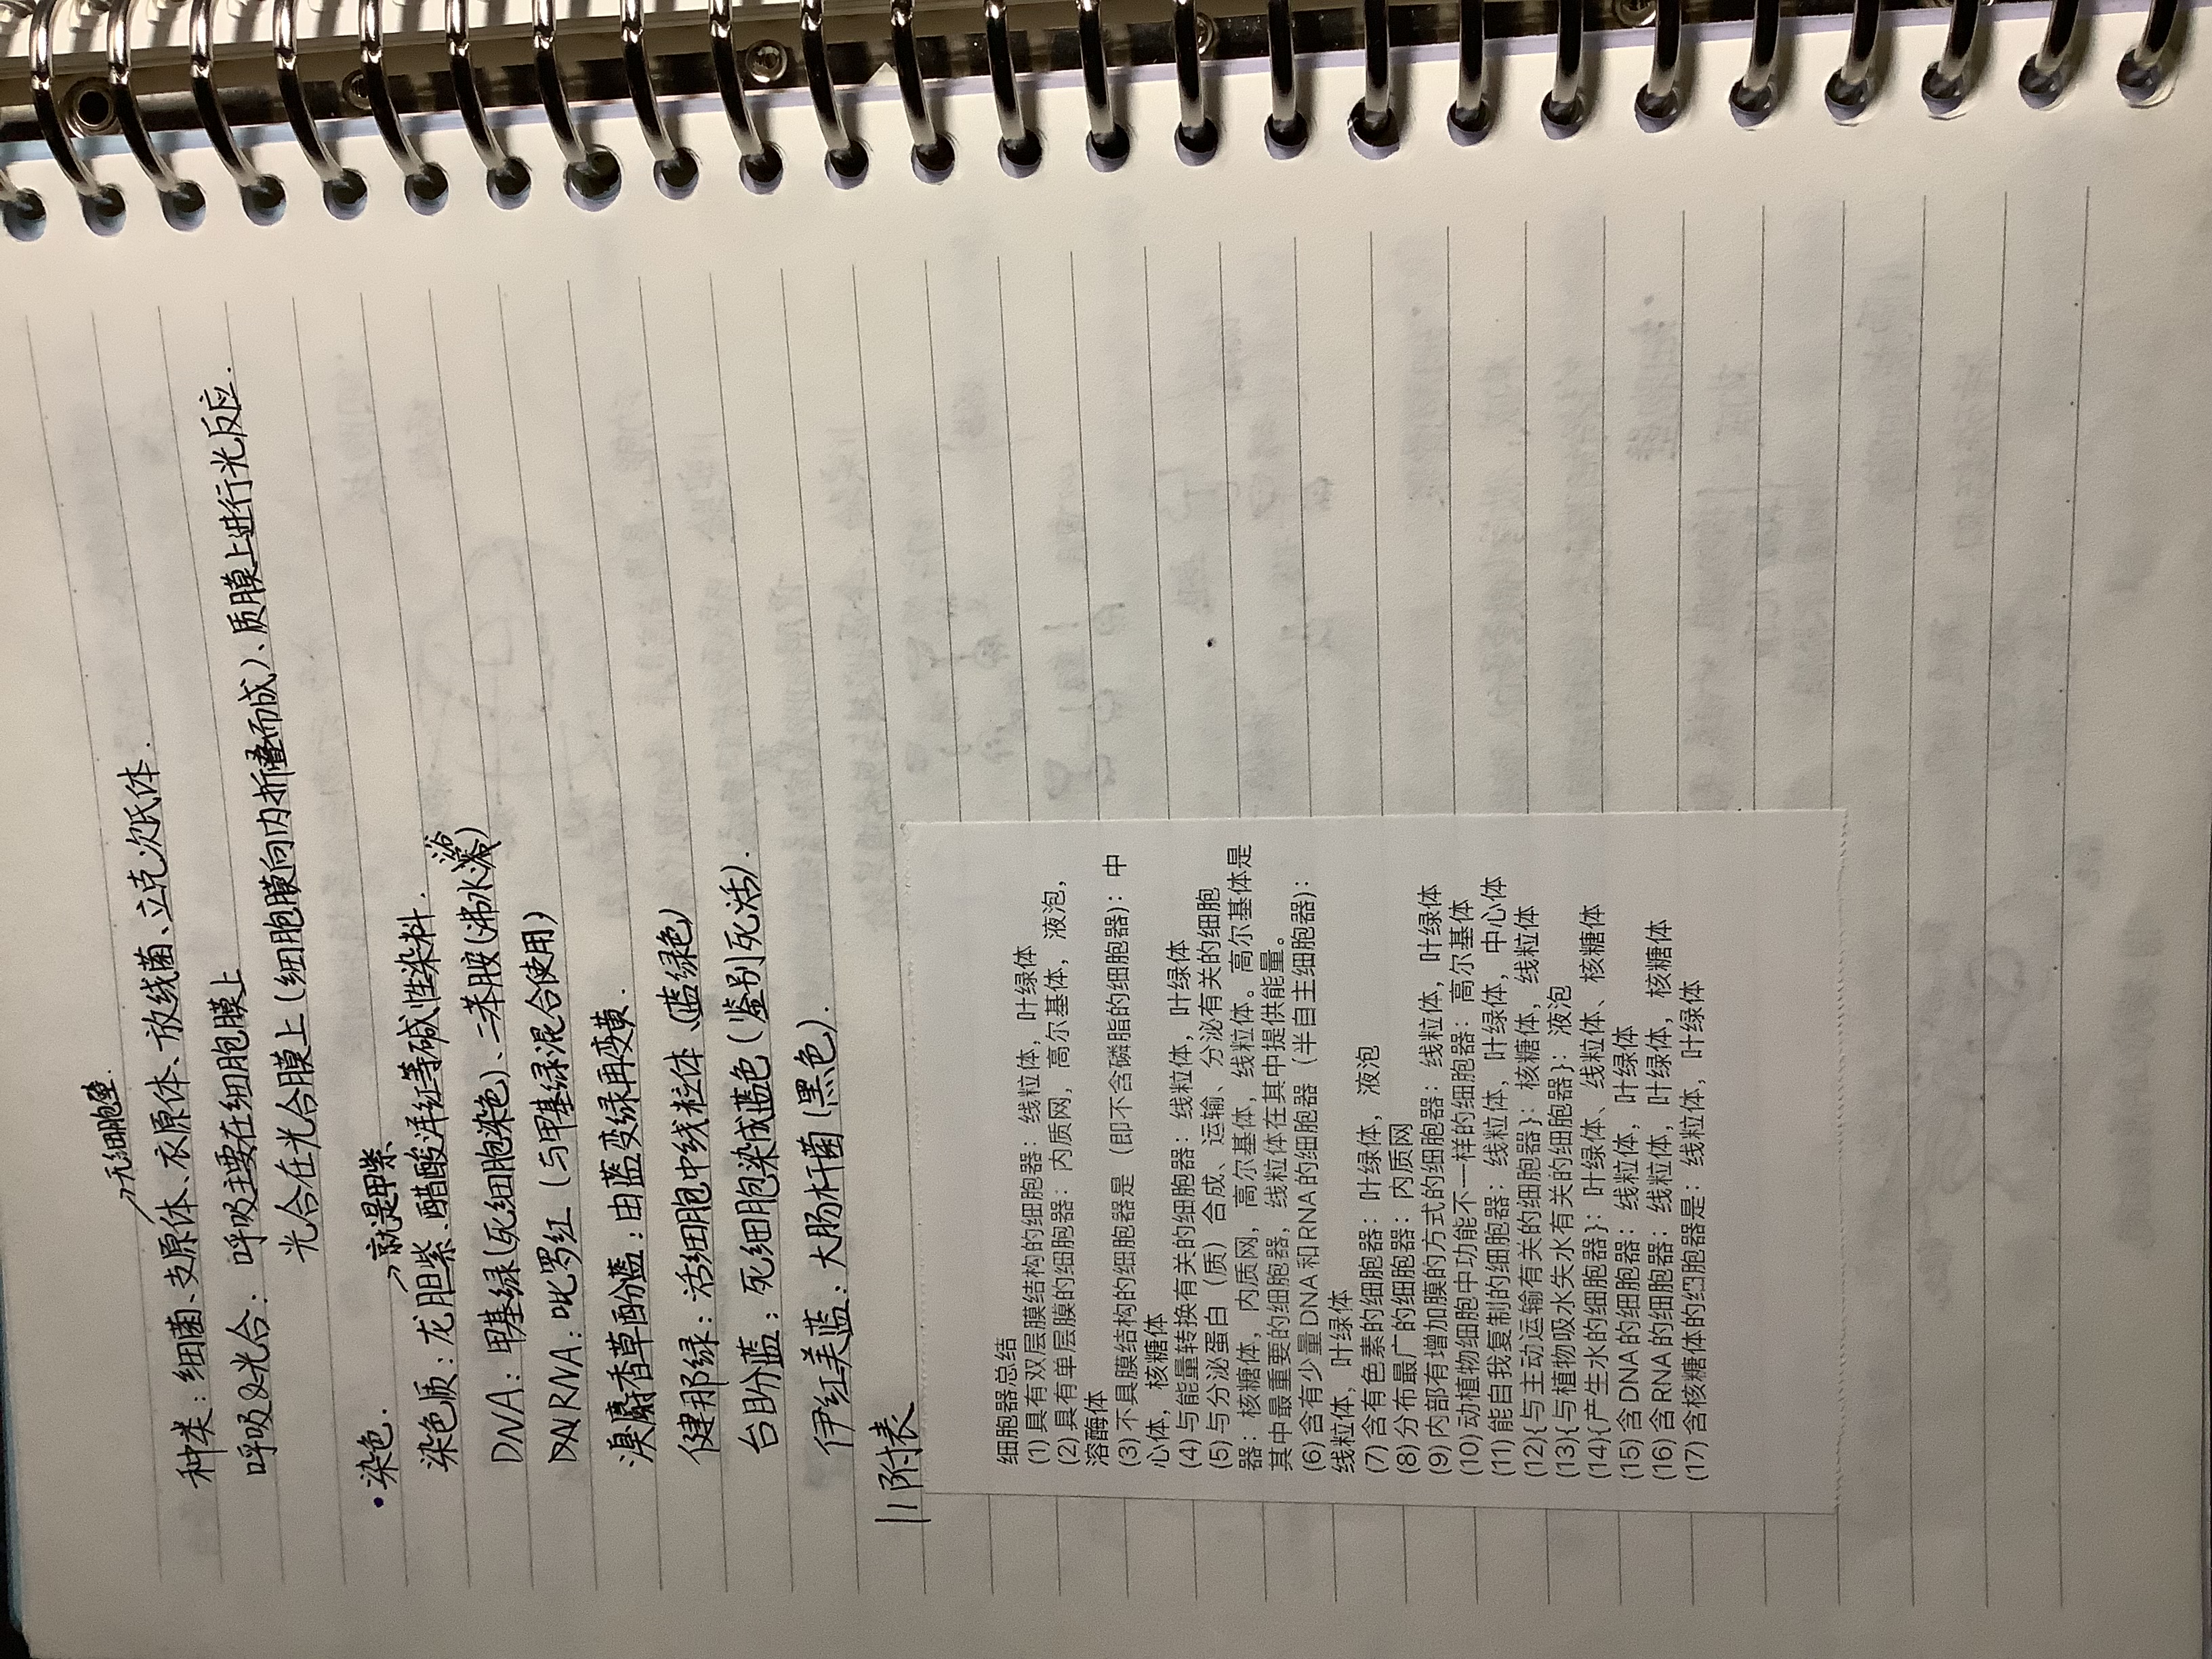 →无细胞壁.
种类：细菌、支原体、衣原体、放线菌、立克次氏体.
呼吸&光合：呼吸主要在细胞膜上
光合在光合膜上(细胞膜向内折叠而成)、质膜上进行光反应.
·染色.
→就是甲紫.
染色质：龙胆紫、醋酸洋红等碱性染料.
DNA：甲基绿(死细胞染色)、二苯胺(沸水浴)
RNA：吡罗红(与甲基绿混合使用)
溴麝香草酚蓝：由蓝变绿再变黄.
健那绿：活细胞中线粒体(蓝绿色)
台盼蓝：死细胞染成蓝色(鉴别死活).
伊红美蓝：大肠杆菌(黑色).
||附表
细胞器总结
(1) 具有双层膜结构的细胞器：线粒体，叶绿体
(2) 具有单层膜的细胞器：内质网，高尔基体，液泡，
溶酶体
(3) 不具膜结构的细胞器是（即不含磷脂的细胞器)：中
心体，核糖体
(4) 与能量转换有关的细胞器：线粒体，叶绿体
(5) 与分泌蛋白（质）合成、运输、分泌有关的细胞
器：核糖体，内质网，高尔基体，线粒体。高尔基体是
其中最重要的细胞器，线粒体在其中提供能量。
(6) 含有少量DNA和RNA的细胞器（半自主细胞器)：
线粒体，叶绿体
(7) 含有色素的细胞器：叶绿体，液泡
(8) 分布最广的细胞器：内质网
(9) 内部有增加膜的方式的细胞器：线粒体，叶绿体
(10) 动植物细胞中功能不一样的细胞器：高尔基体
(11) 能自我复制的细胞器：线粒体，叶绿体，中心体
(12){与主动运输有关的细胞器}：核糖体，线粒体
(13){与植物吸水失水有关的细胞器}：液泡
(14){产生水的细胞器}：叶绿体、线粒体、核糖体
(15) 含DNA的细胞器：线粒体，叶绿体
(16) 含RNA的细胞器：线粒体，叶绿体，核糖体
(17) 含核糖体的细胞器是：线粒体，叶绿体